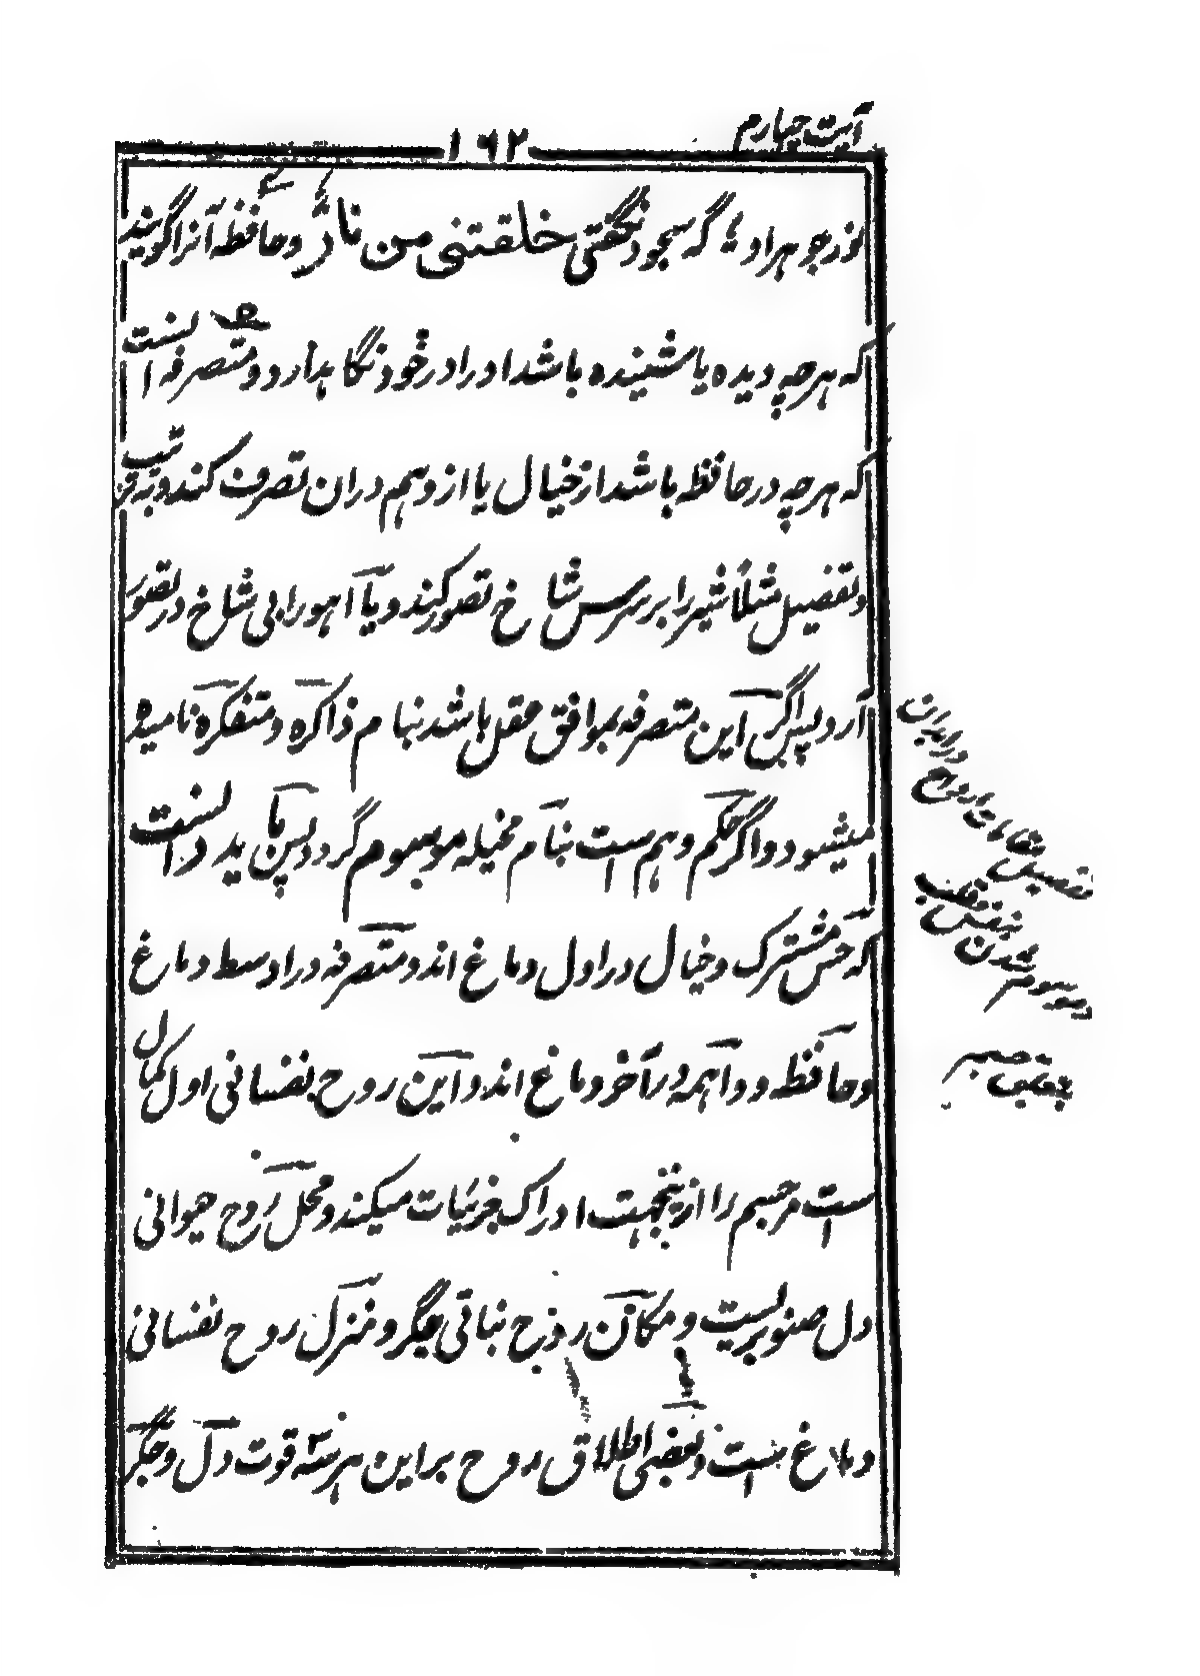 آیت چهارم
۱۶۲
نور جوهر او بدی گه سجود نگفتی خلقتنی من نار و حافظه آنرا گویند
که هر چه دیده یا شنیده باشد او را در خود نگاهدارد و متصرفه آنست
که هر چه در حافظه باشد از خیال یا از وهم دران تصرف کند و به ترکیب
و تفصیل مثلاً شیر را بر سرش شاخ تصور کند و یا آهو را بی شاخ در تصور
آرد پس اگر این متصرفه بموافق عقل باشد بنام ذاکره و متفکره نامیده
میشود و اگر حکم وهم است بنام مخیله موسوم گردد پس باید دانست
که حس مشترک و خیال در اول دماغ اند و متصرفه در اوسط دماغ
و حافظه و واهمه در آخر دماغ اند و این روح نفسانی اول کمال
است مر جسم را ازینجهت ادراک جزئیات میکند و محل روح حیوانی
دل صنوبریست و مکان روح نباتی جگر و منزل روح نفسانی
دماغ است و بعضی اطلاق روح بر این هر سه قوت دل و جگر
تفصیل مقامات ارواح در ابدان
و موسوم شدن نفس بقلب